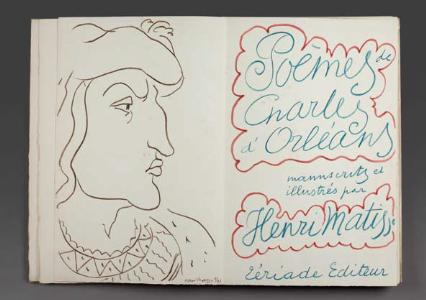 Poèmes de
Charles
d'Orléans
manuscrits et
illustrés par
Henri Matisse
Tériade Editeur